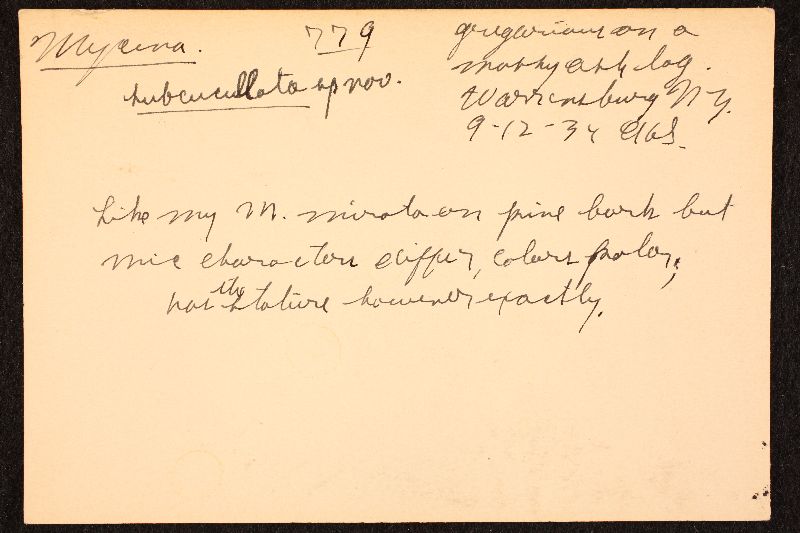 Mycena. 779 gregarious on a
subcucullata sp nov. mossy ash log.
Warrensburg N Y.
9-12-34
Like my M. mirata on pine bark but
mic characters differ, colors paler,
has the stature however exactly.